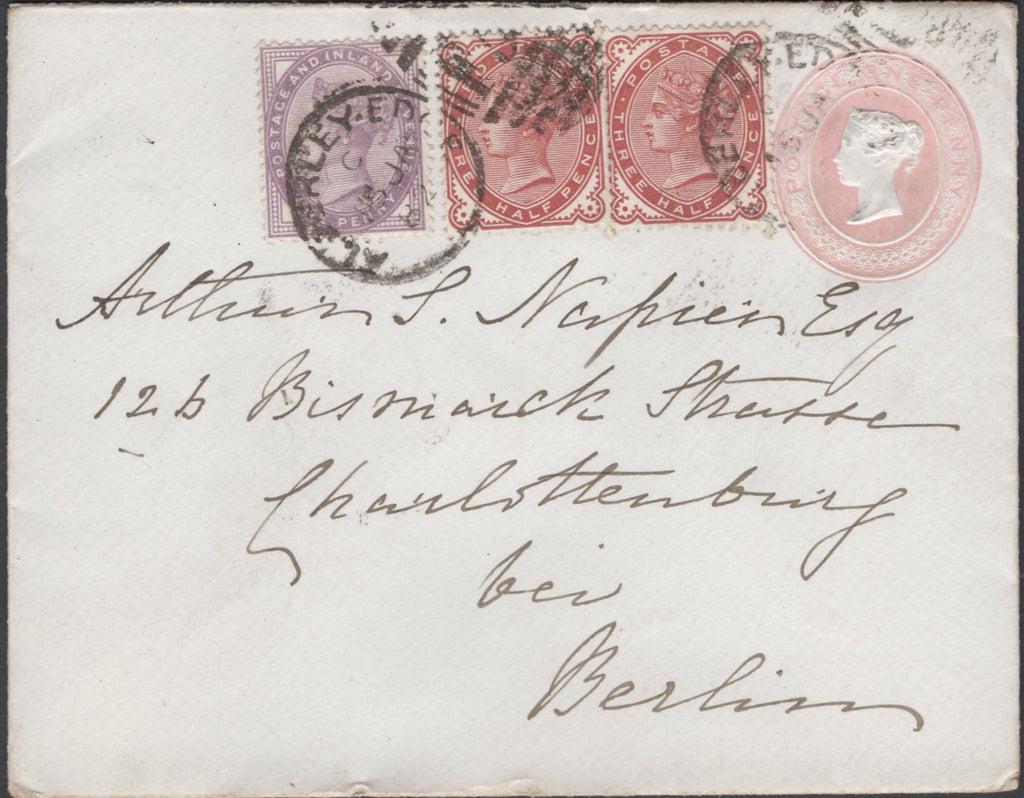 POSTAGE AND INLAND
PENNY
POSTA
THREE HALF PENCE
POSTA
THREE HALF PENCE
ALDERLEY·EDG
C
JA
82
Arthur S. Napier Esq
12 b Bismarck Strasse
Charlottenburg
bei
Berlin